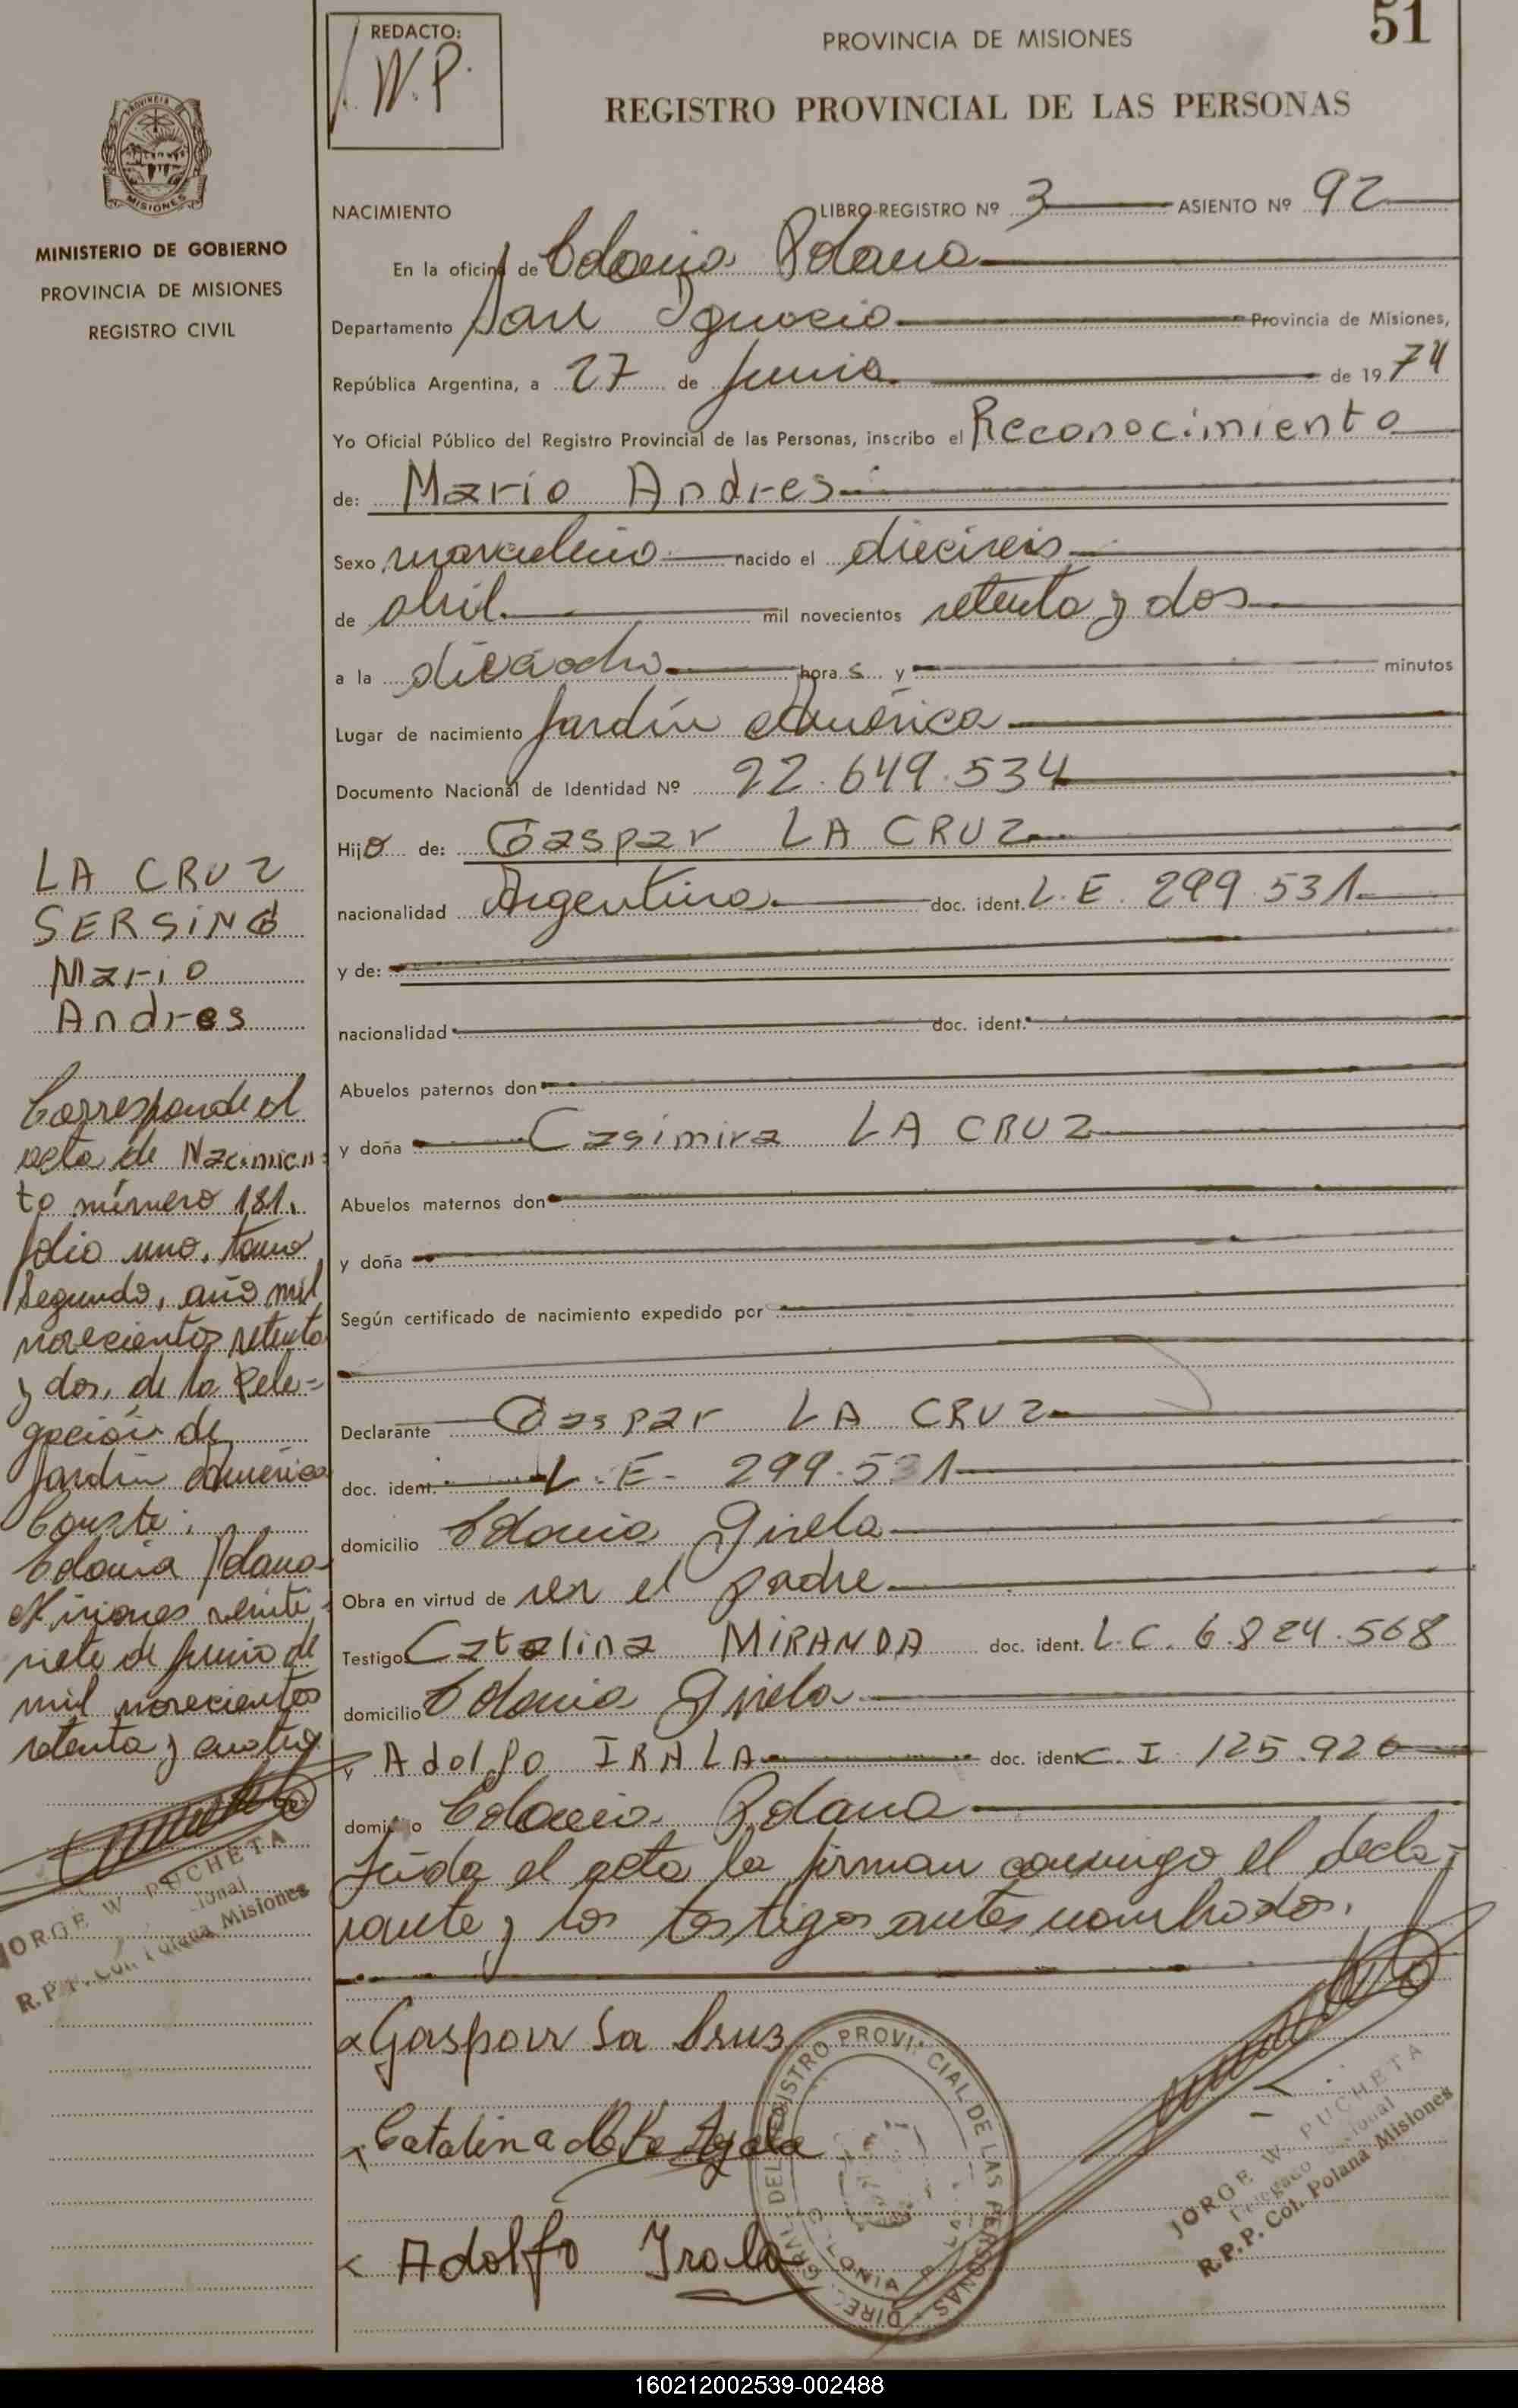 REDACTO:
W.P.
PROVINCIA DE MISIONES
51
REGISTRO PROVINCIAL DE LAS PERSONAS
MISIONES
MINISTERIO DE GOBIERNO
PROVINCIA DE MISIONES
REGISTRO CIVIL
NACIMIENTO LIBRO-REGISTRO Nº 3 ASIENTO Nº 92
En la oficina de Colonia Polana
Departamento San Ignacio Provincia de Misiones,
República Argentina, a 27 de Junio de 1974
Yo Oficial Público del Registro Provincial de las Personas, inscribo el Reconocimiento
de: Mario Andres
Sexo masculino nacido el dieciseis
de abril mil novecientos setenta y dos
a la dieciocho hora s y minutos
Lugar de nacimiento Jardín América
Documento Nacional de Identidad Nº 22.649.534
Hijo de: Gaspar LA CRUZ
nacionalidad Argentina doc. ident. L.E. 299.531
y de:
nacionalidad doc. ident.
Abuelos paternos don
y doña Casimira LA CRUZ
Abuelos maternos don
y doña
Según certificado de nacimiento expedido por
Declarante Gaspar LA CRUZ
doc. ident. L.E. 299.531
domicilio Colonia Gisela
Obra en virtud de ser el padre
Testigos Catalina MIRANDA doc. ident. L.C. 6.824.568
domicilio Colonia Gisela
y Adolfo IRALA doc. ident. C.I. 125.926
domicilio Colonia Polana
Leída el acta la firman conmigo el decla-
rante y los testigos antes nombrados.
Gaspar La Cruz
Catalina
Adolfo Irala
LA CRUZ
SERSINO
Mario
Andres
Corresponde al
acta de Nacimien-
to número 181.
folio uno, tomo
segundo, año mil
novecientos setenta
y dos, de la Dele-
gación de
Jardín América
Conste:
Colonia Polana
Misiones veinti-
siete de junio de
mil novecientos
setenta y cuatro
JORGE W. PUCHETA
R.P.P. Col. Polana Misiones
DIREC. GRAL. DEL REGISTRO PROVINCIAL DE LAS PERSONAS
COLONIA
JORGE W. PUCHETA
Delegado
R.P.P. Col. Polana Misiones
160212002539-002488